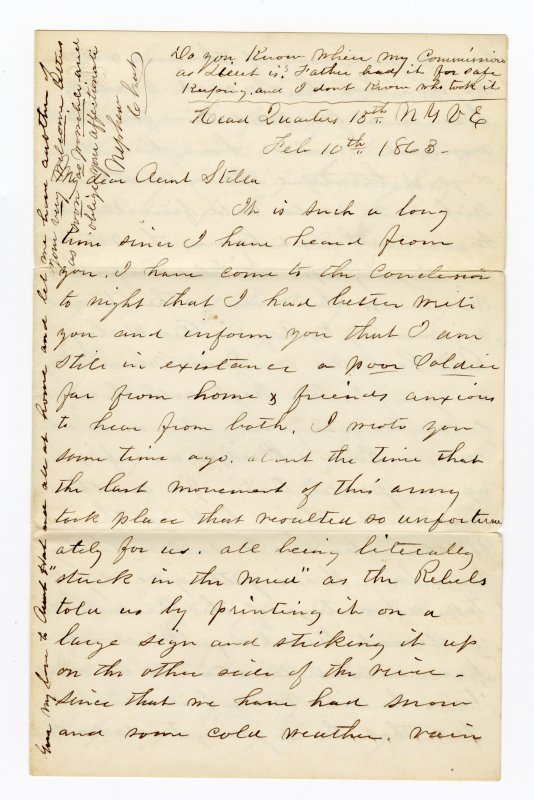 Do you Know where my Commission
as Lieut is? Father had it for safe
Keeping and I dont Know who took it
Head Quarters 15th N Y V E
Feb 10th 1863 -
My dear Aunt Stella
It is such a long
time since I have heard from
you. I have come to the conclusion
to night that I had better write
you and inform you that I am
still in existance a poor Soldier
far from home & friends anxious
to hear from both. I wrote you
some time ago. about the time that
the last movement of this army
took place that resulted so unfortun
ately for us. all being literally
"stuck in the mud" as the Rebels
told us by printing it on a
large sign and sticking it up
on the other side of the river -
since that we have had snow
and some cold weather. rain
Give my love to Aunt and all at home and let me have another of
your very welcome letters
as soon as possible and
oblige your affectionate
Nephew